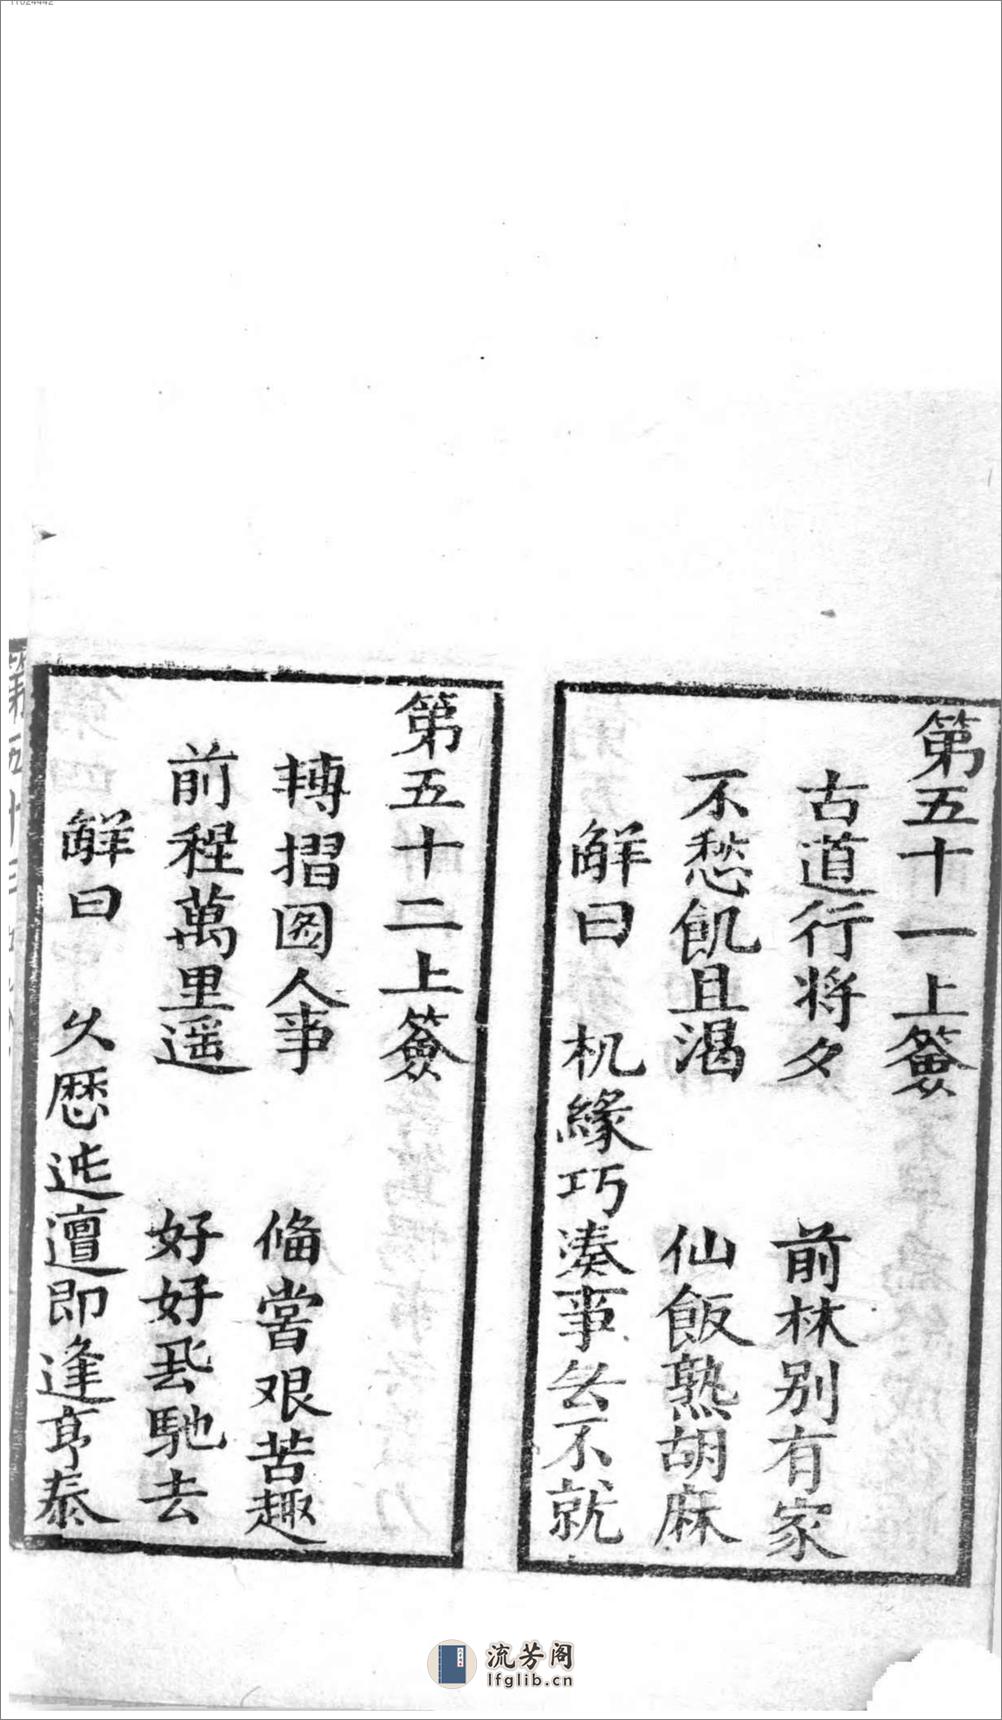 第五十一上簽
古道行将夕　前林别有家
不愁飢且渴　仙飯熟胡麻
解曰　机緣巧湊事無不就
第五十二上簽
轉摺図人事　俻嘗艰苦趣
前程萬里遥　好好飛馳去
解曰　久歴迍邅即逢亨泰
第五十三
流芳阁
lfglib.cn
11024442